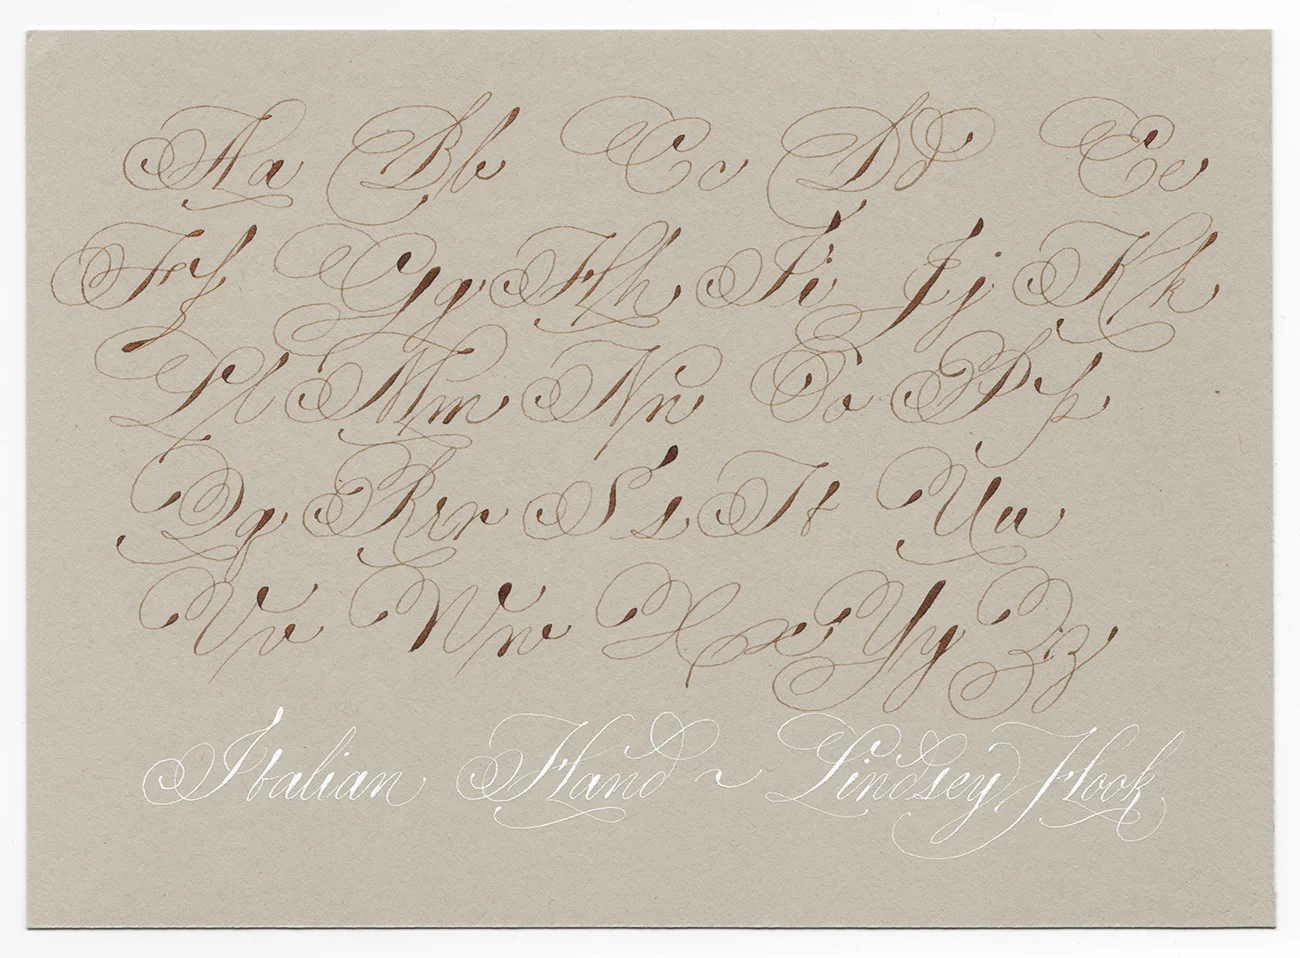 Aa Bb Cc Dd Ee
Ff Gg Hh Ii Jj Kk
Ll Mm Nn Oo Pp
Qq Rrr Ss Tt Uu
Vv Ww Xx Yy Zz
Italian Hand ~ Lindsey Hook